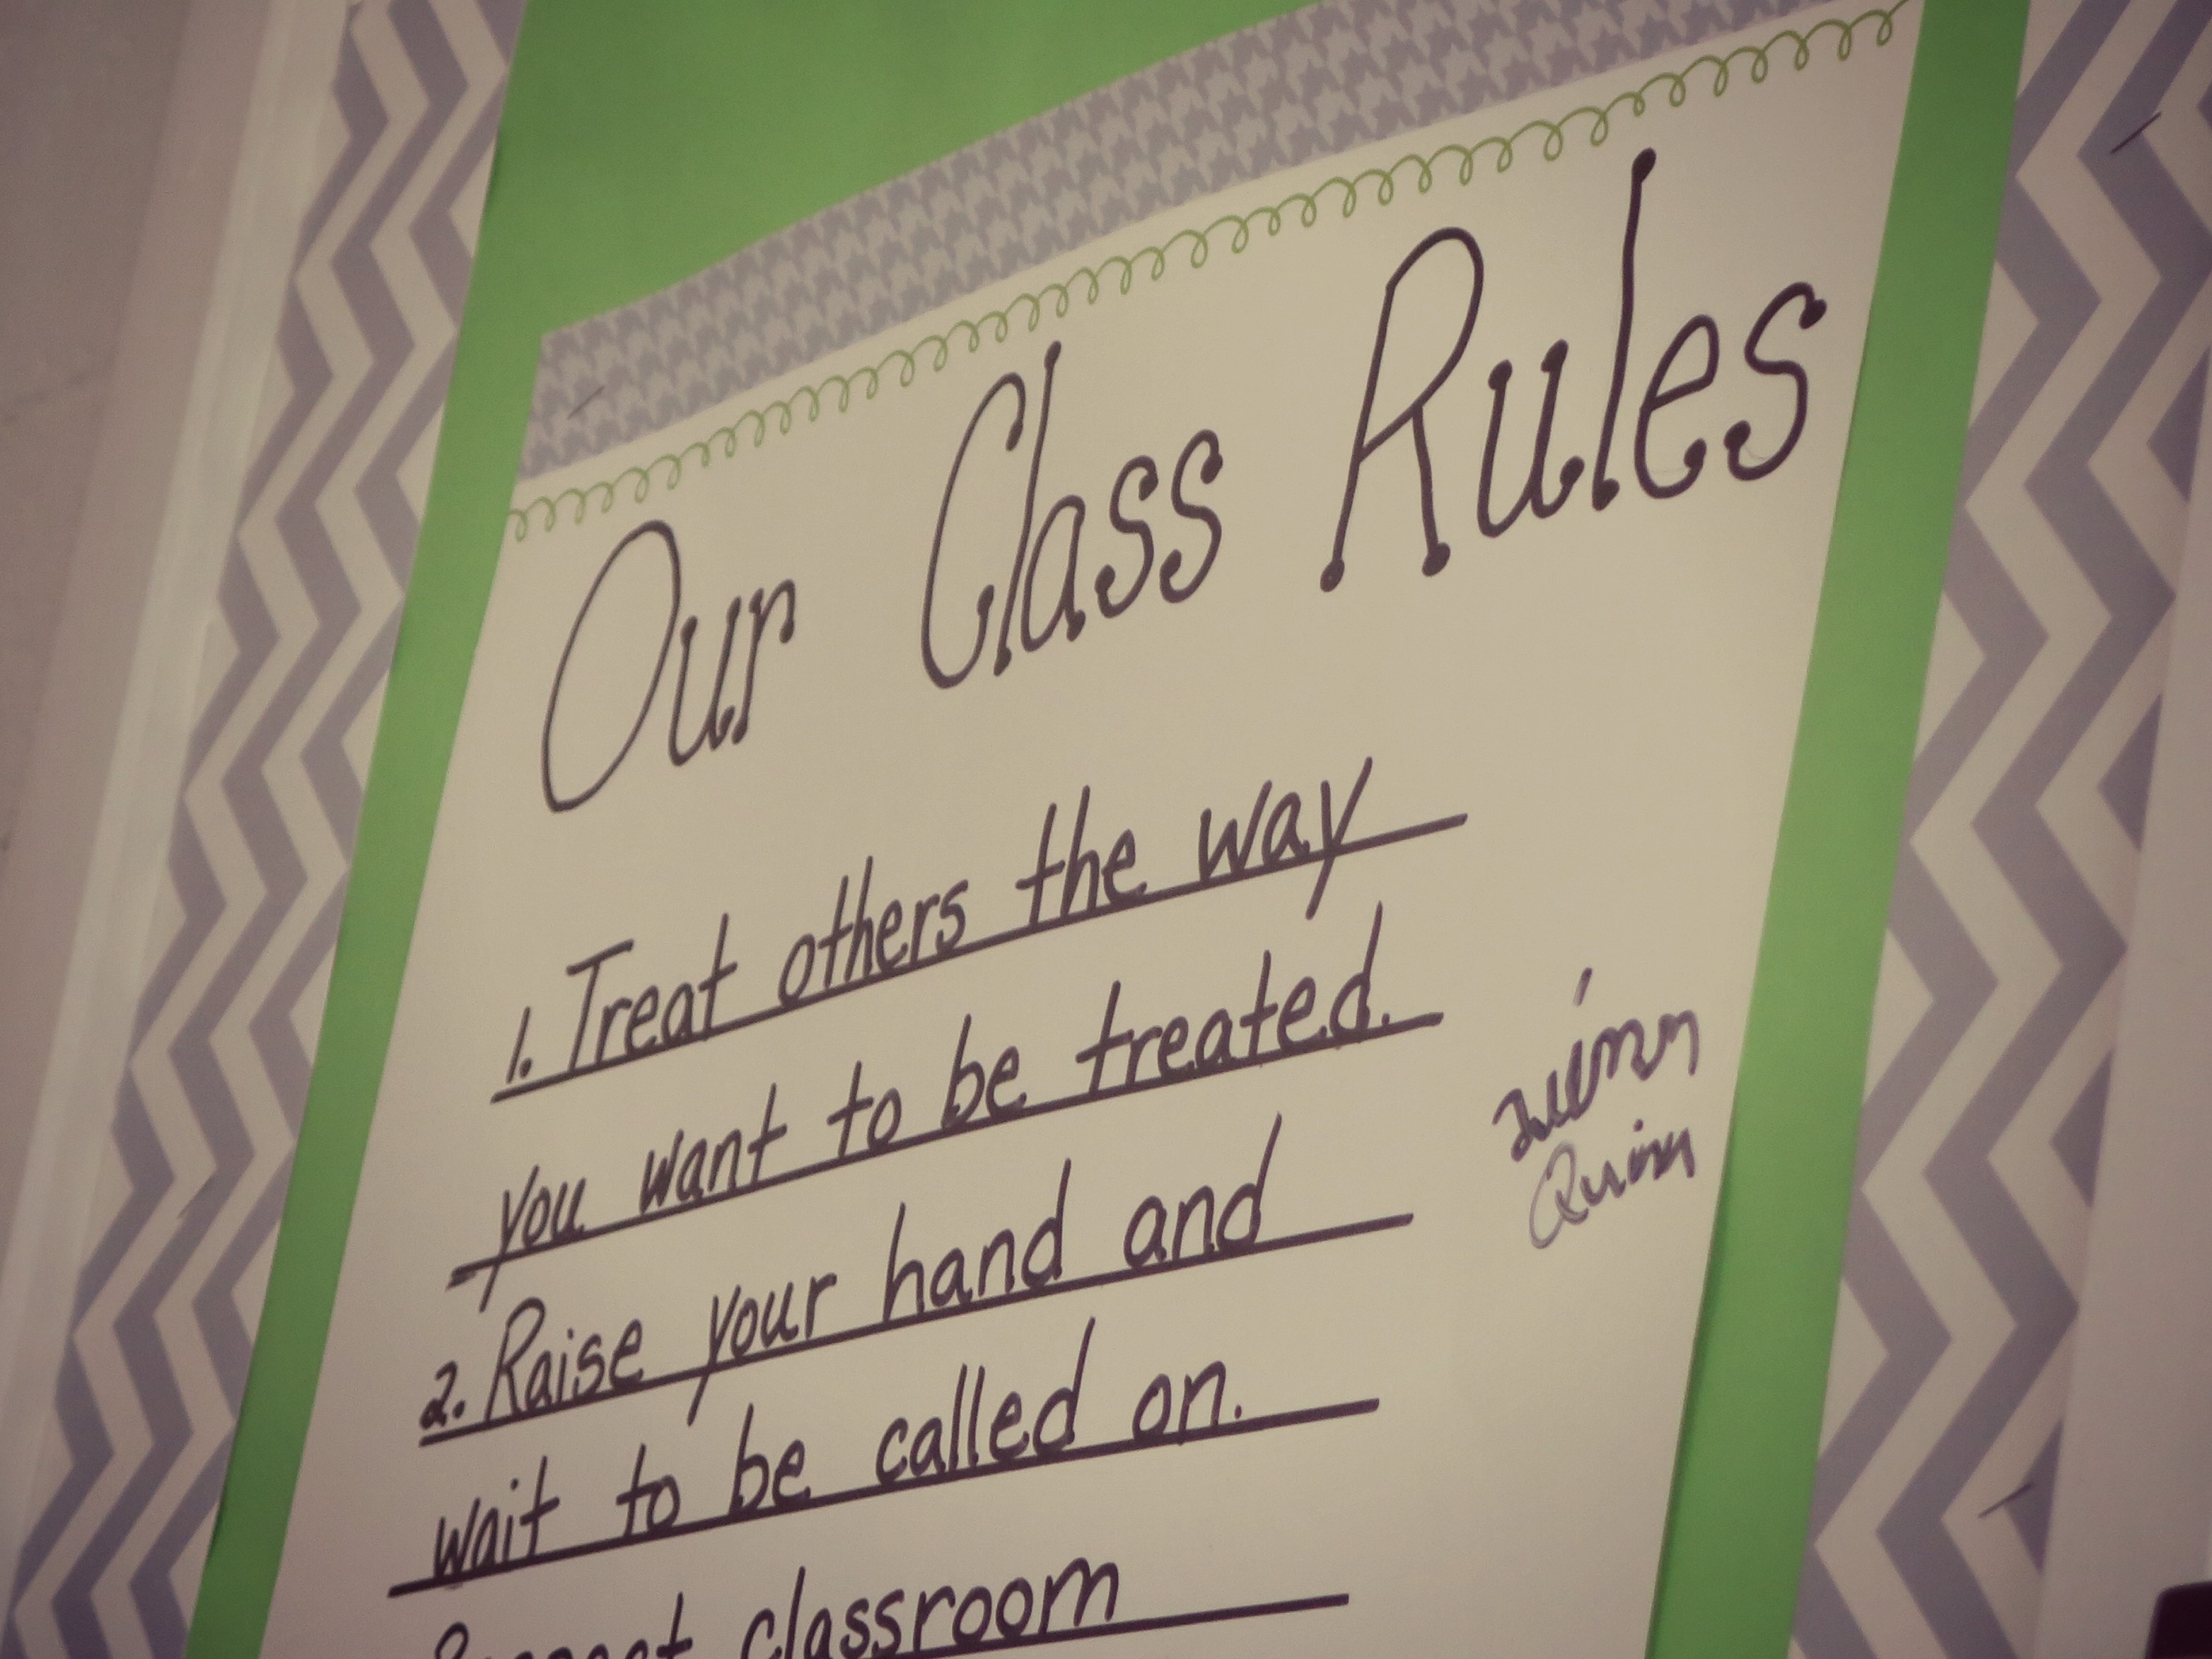 Our Class Rules
1. Treat others the way
you want to be treated.
2. Raise your hand and
wait to be called on.
Respect classroom
Quinn
Quinn